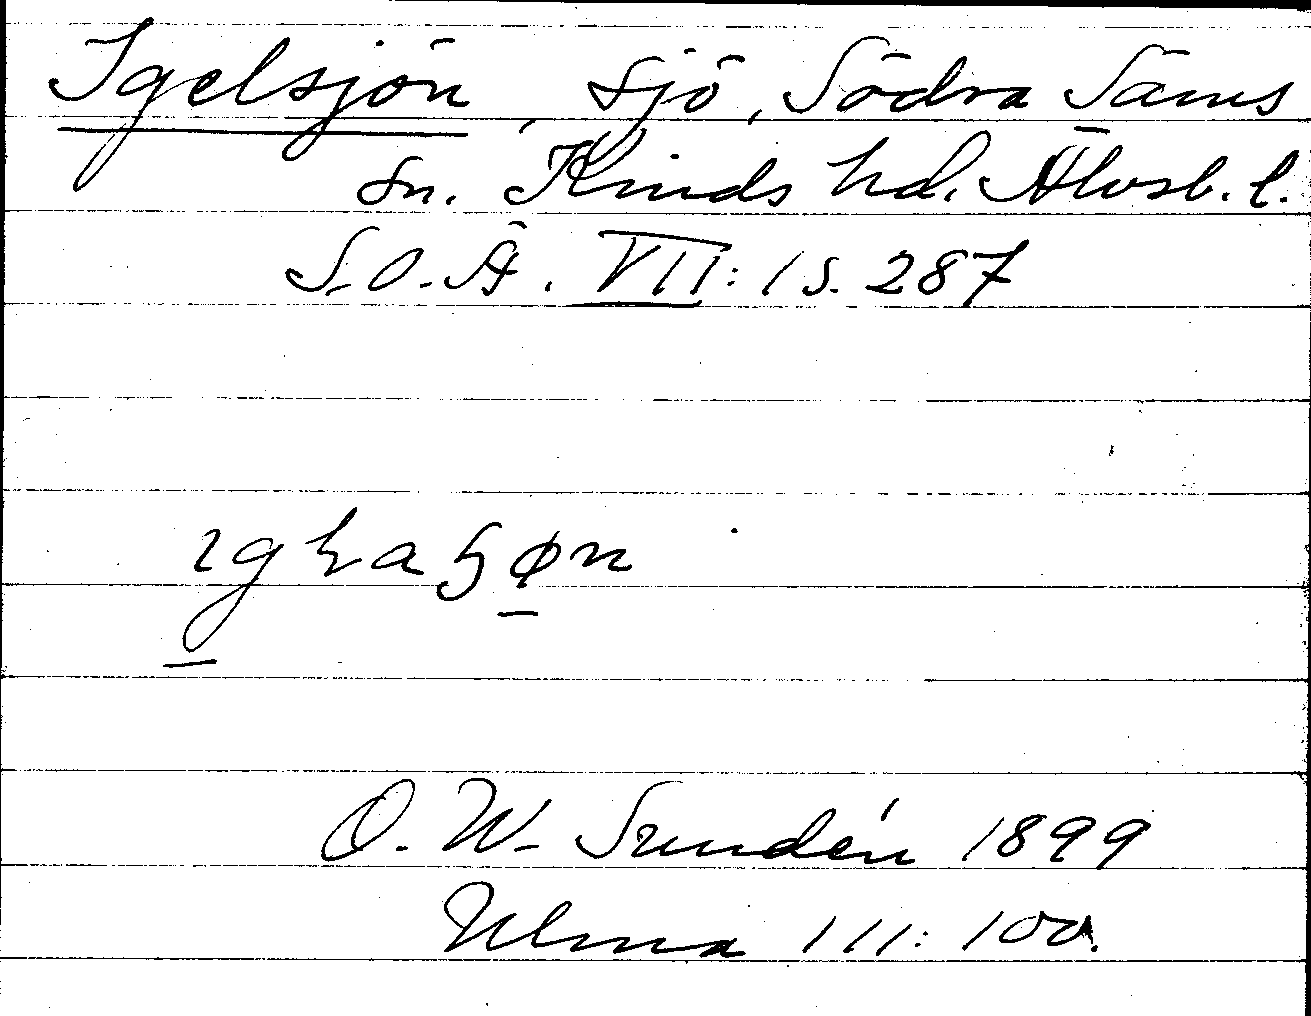 Igelsjön, sjö, Södra Säms
sn. Kinds hd. Älvsb. l.
S.O.Ä. VII: 1 s. 287
O. W. Sundén 1899
Ulma 111: 100.